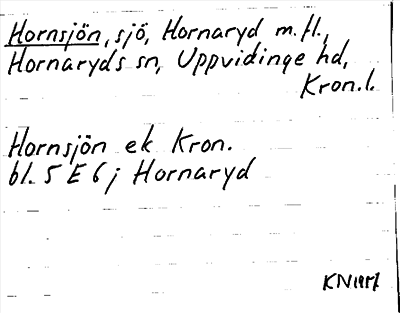 Hornsjön, sjö, Hornaryd m.fl.,
Hornaryds sn, Uppvidinge hd,
Kron.l.
Hornsjön ek Kron.
bl. 5 E 6 j Hornaryd